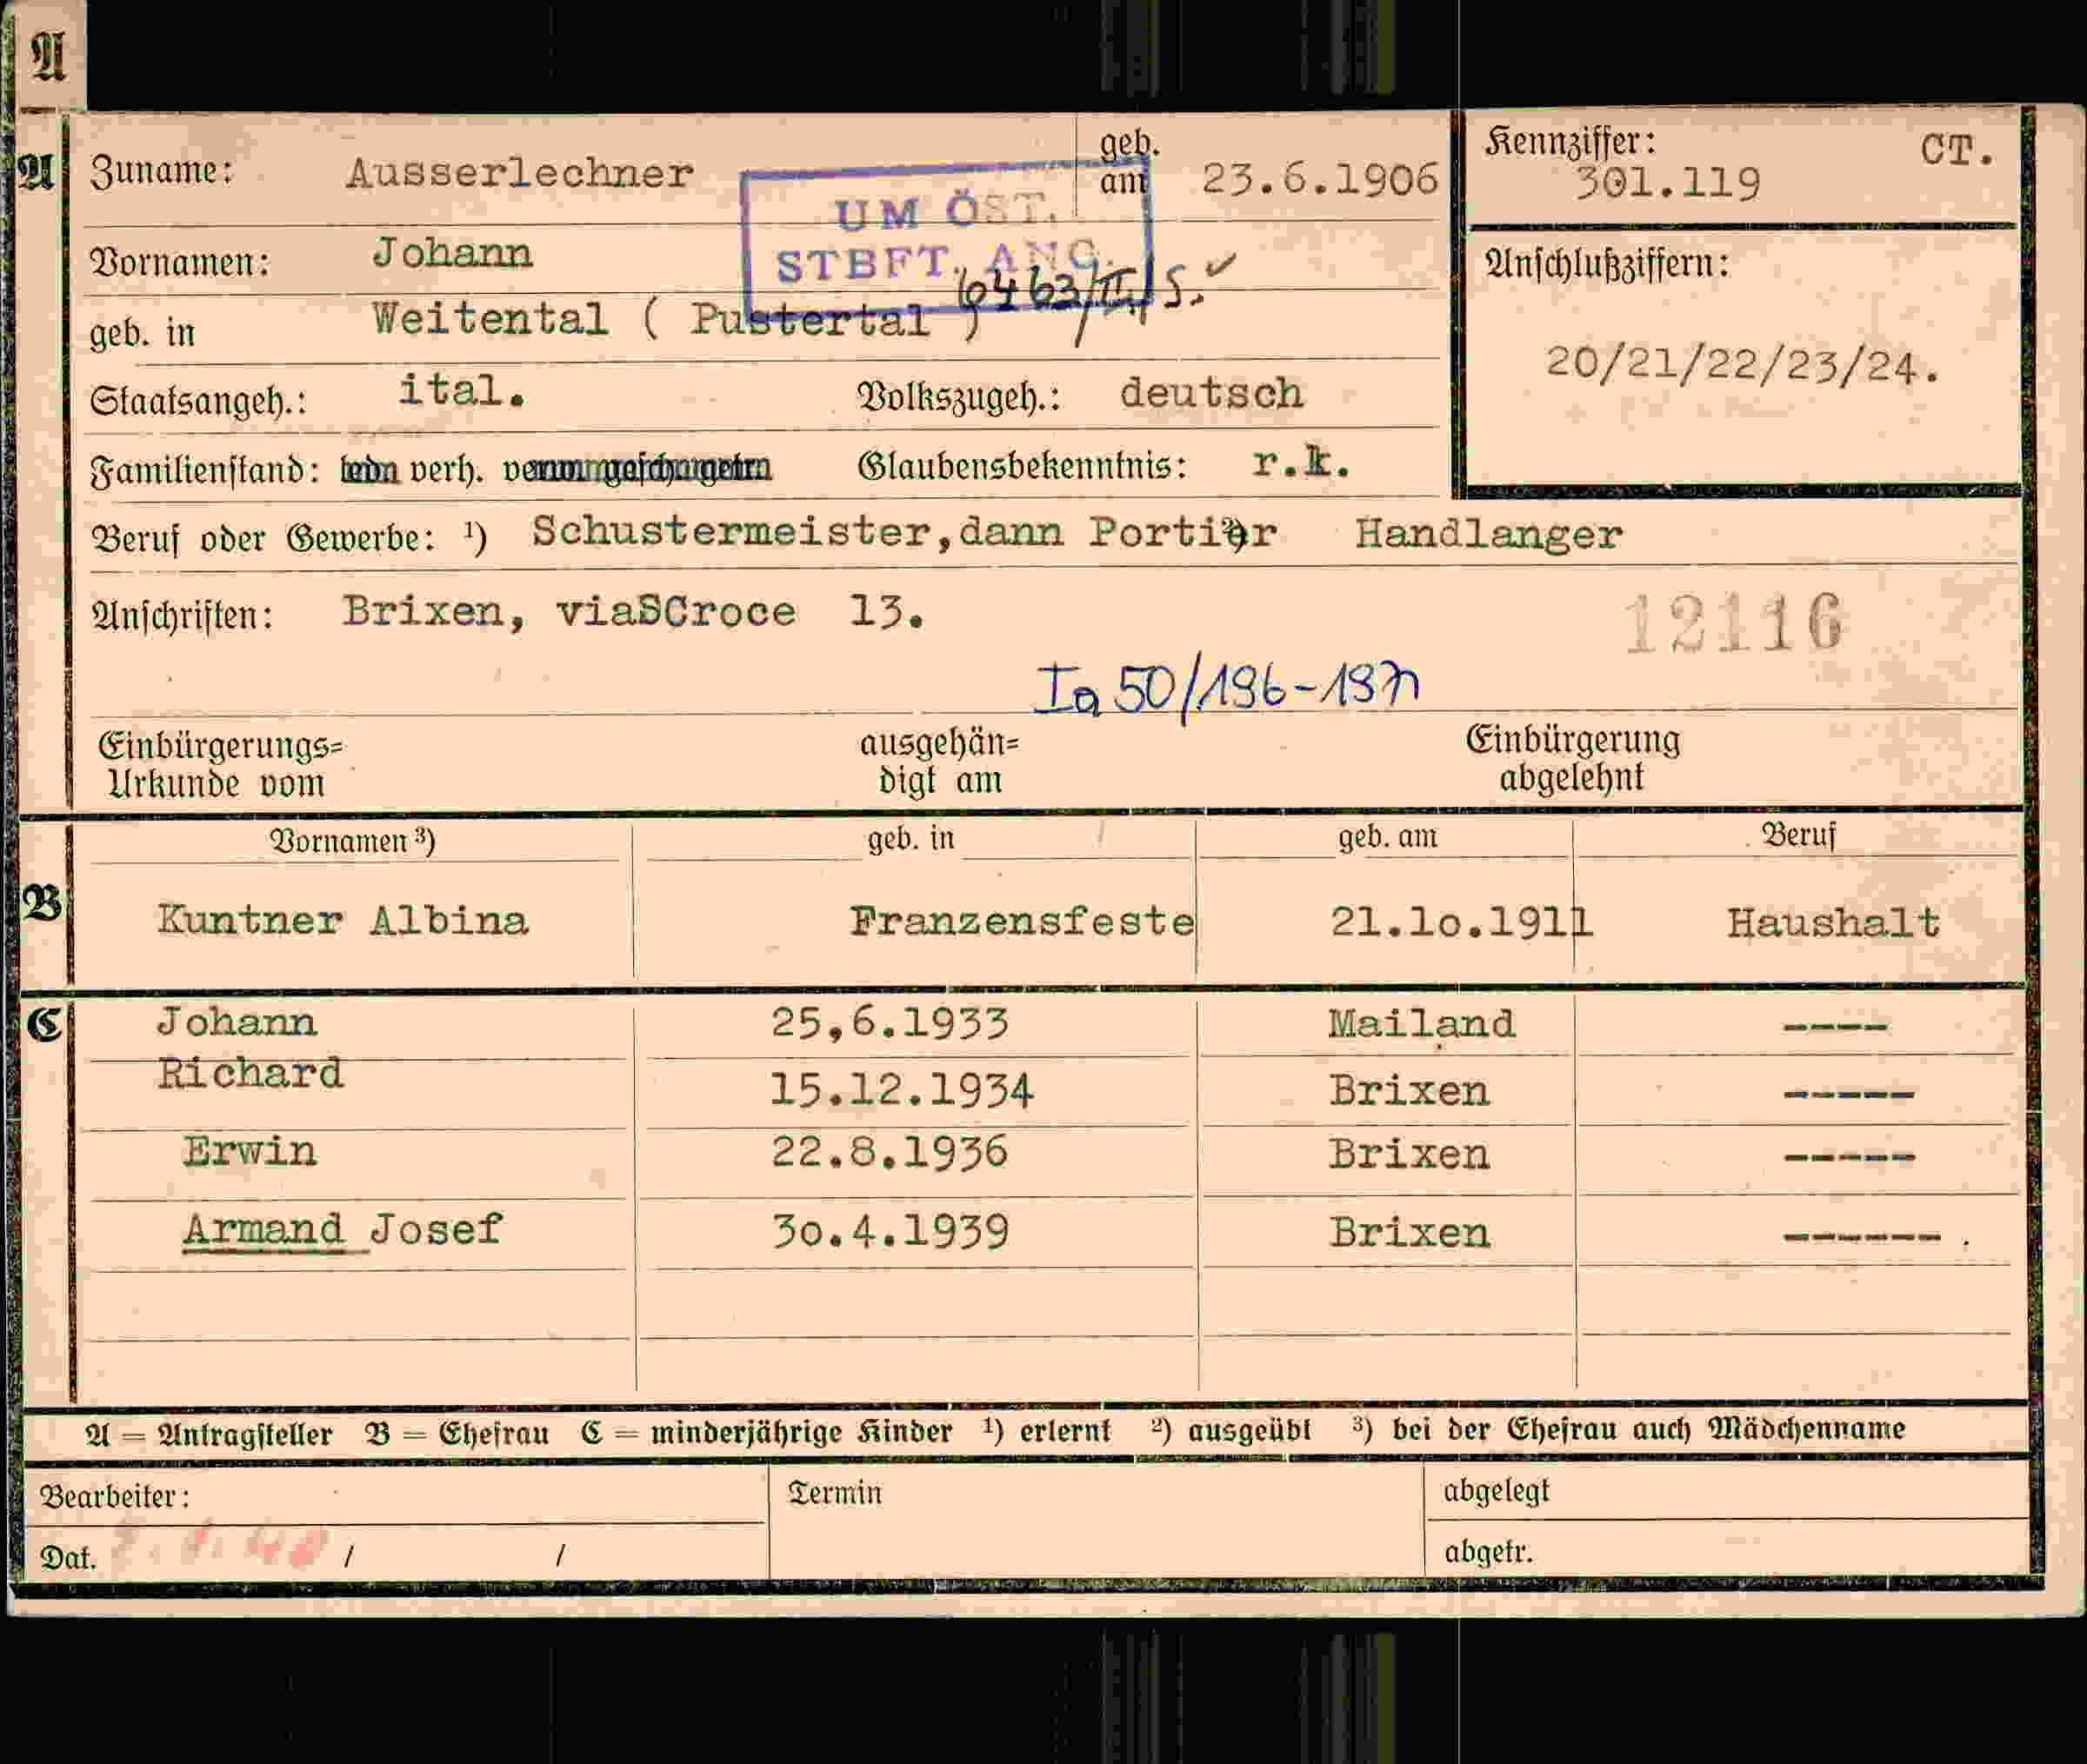 A
A Zuname: Ausserlechner geb. am 23.6.1906 Kennziffer: 301.119 CT.
UM ÖST.
STBFT. ANG.
Vornamen: Johann 6463/II/S. ✓ Anschlußziffern:
geb. in Weitental ( Pustertal )
20/21/22/23/24.
Staatsangeh.: ital. Volkszugeh.: deutsch
Familienstand: verh. Glaubensbekenntnis: r.k.
Beruf oder Gewerbe: ¹) Schustermeister,dann Portier ²) Handlanger
Anschriften: Brixen, viaSCroce 13. 12116
Ia 50/196-197
Einbürgerungs= ausgehän= Einbürgerung
Urkunde vom digt am abgelehnt
Vornamen ³) geb. in geb. am Beruf
B Kuntner Albina Franzensfeste 21.10.1911 Haushalt
C Johann 25,6.1933 Mailand ----
Richard 15.12.1934 Brixen -----
Erwin 22.8.1936 Brixen -----
Armand Josef 30.4.1939 Brixen ------ .
A = Antragsteller B = Ehefrau C = minderjährige Kinder ¹) erlernt ²) ausgeübt ³) bei der Ehefrau auch Mädchenname
Bearbeiter: Termin abgelegt
Dat. / / abgetr.